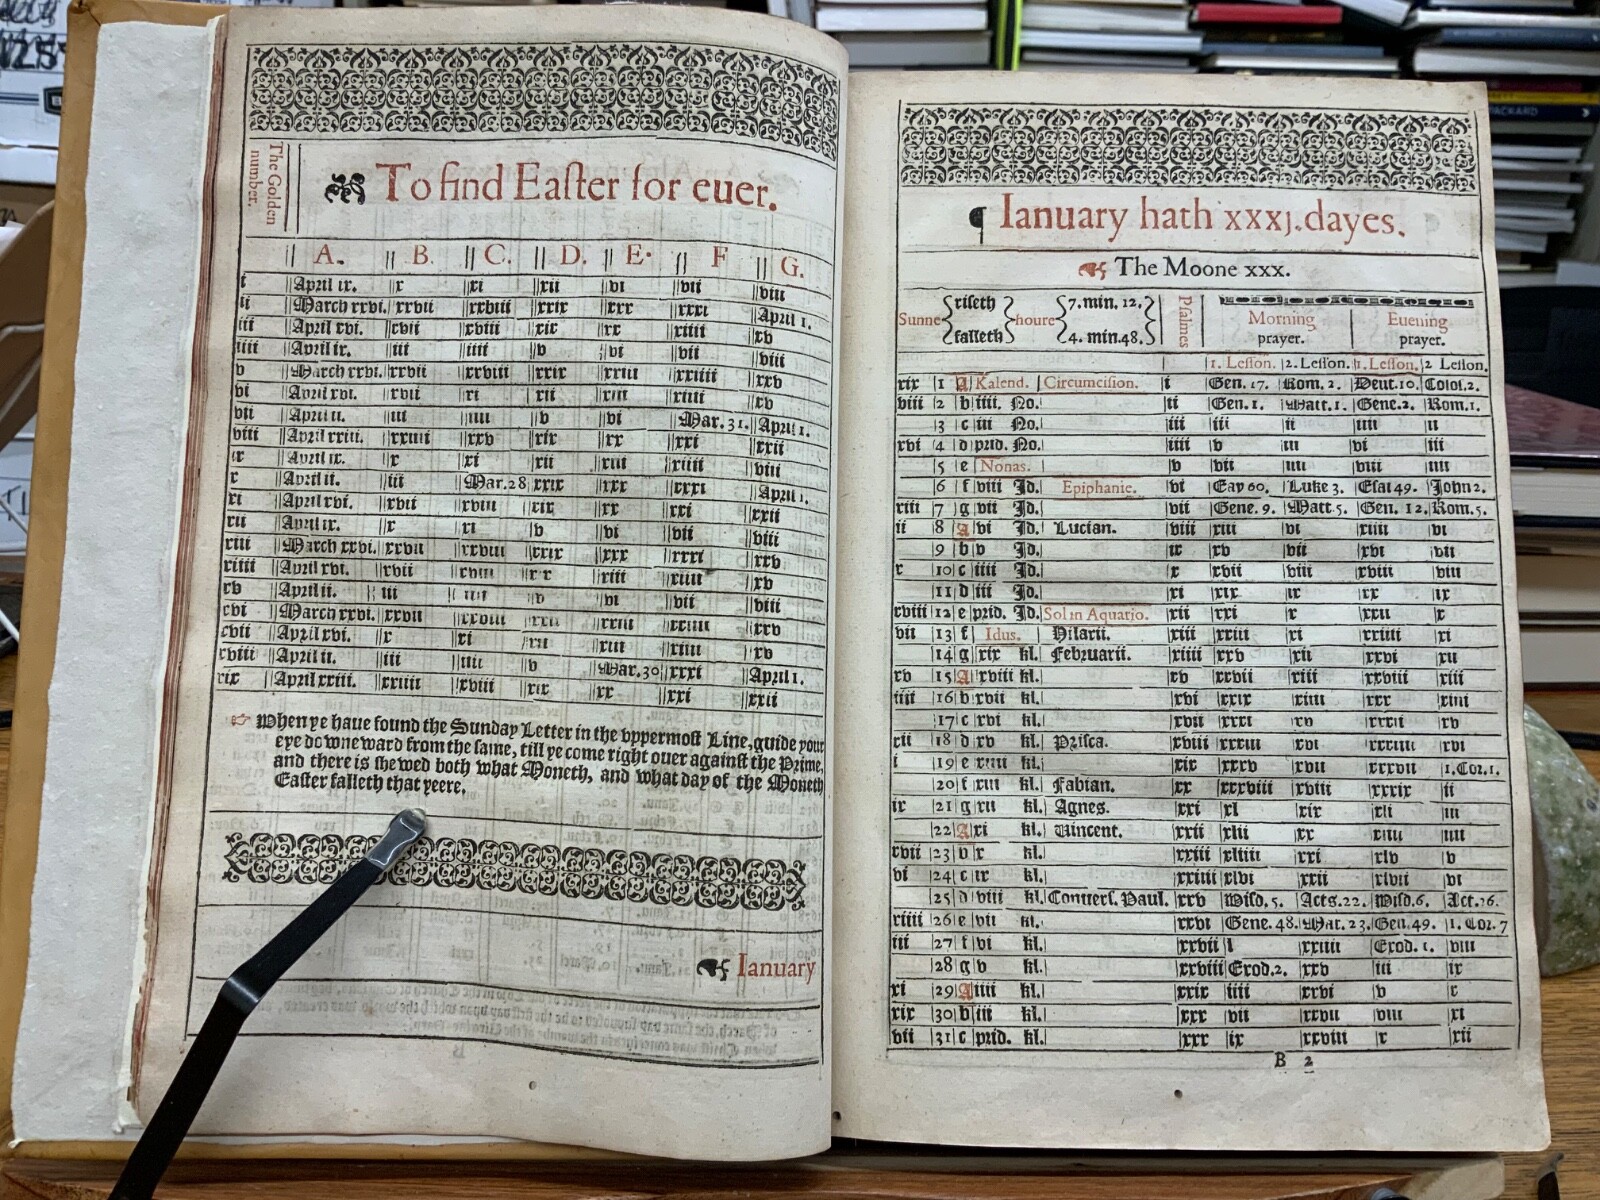 The Golden
number.
To find Easter for euer.
A. B. C. D. E. F G.
i April ix. x xi xii vi vii viii
ii March xxvi. xxvii xxviii xxix xxx xxxi April 1.
iii April xvi. xvii xviii xix xx xiiii xv
iiii April ix. iii iiii v vi vii viii
v March xxvi. xxvii xxviii xxix xxiii xxiiii xxv
vi April xvi. xvii xi xii xiii xiiii xv
vii April ii. iii iiii v vi Mar. 31. April 1.
viii April xxiii. xxiiii xxv xix xx xxi xxii
ix April ix. x xi xii xiii xiiii viii
x April ii. iii Mar. 28 xxix xxx xxxi April 1.
xi April xvi. xvii xviii xix xx xxi xxii
xii April ix. x xi v vi vii viii
xiii March xxvi. xxvii xxviii xxix xxx xxxi xxv
xiiii April xvi. xvii xviii xiii xiiii xv
xv April ii. iii iiii v vi vii viii
xvi March xxvi. xxvii xxviii xxiii xxiiii xxv
xvii April xvi. x xi xii xiii xiiii xv
xviii April ii. iii iiii v Mar. 30 xxxi April 1.
xix April xxiii. xxiiii xviii xix xx xxi xxii
When ye haue found the Sunday Letter in the vppermost Line, guide your
eye downeward from the same, till ye come right ouer against the Prime,
and there is shewed both what Moneth, and what day of the Moneth
Easter falleth that yeere.
Ianuary
Ianuary hath xxxj. dayes.
The Moone xxx.
Sunne riseth falleth houre 7. min. 12. 4. min. 48. Psalmes
Morning prayer. Euening prayer.
1. Lesson. 2. Lesson. 1. Lesson. 2 Lesson.
xix 1 A Kalend. Circumcision. i Gen. 17. Rom. 2. Deut. 10. Colos. 2.
viii 2 b iiii. No. ii Gen. 1. Matt. 1. Gene. 2. Rom. 1.
3 c iii No. iii iii ii iiii ii
xvi 4 d prid. No. iiii v iii vi iii
5 e Nonas. v vii iiii viii iiii
6 f viii Id. Epiphanie. vi Esay 60. Luke 3. Esai 49. John 2.
xiii 7 g vii Id. vii Gene. 9. Matt. 5. Gen. 12. Rom. 5.
ii 8 A vi Id. Lucian. viii xiii vi xiiii vi
9 b v Id. ix xv vii xvi vii
x 10 c iiii Id. x xvii viii xviii viii
11 d iii Id. xi xix ix xx ix
xviii 12 e prid. Id. Sol in Aquario. xii xxi x xxii x
vii 13 f Idus. Hilarii. xiii xxiii xi xxiiii xi
14 g xix kl. Februarii. xiiii xxv xii xxvi xii
xv 15 A xviii kl. xv xxvii xiii xxviii xiii
iiii 16 b xvii kl. xvi xxix xiiii xxx xiiii
17 c xvi kl. xvii xxxi xv xxxii xv
xii 18 d xv kl. Prisca. xviii xxxiii xvi xxxiiii xvi
i 19 e xiiii kl. xix xxxv xvii xxxvii 1. Cor. 1.
20 f xiii kl. Fabian. xx xxxviii xviii xxxix ii
ix 21 g xii kl. Agnes. xxi xl xix xli iii
22 A xi kl. Vincent. xxii xlii xx xliii iiii
xvii 23 b x kl. xxiii xliiii xxi xlv v
vi 24 c ix kl. xxiiii xlvi xxii xlvii vi
25 d viii kl. Conuers. Paul. xxv Wisd. 5. Acts. 22. Wisd. 6. Act. 26.
xiiii 26 e vii kl. xxvi Gene. 48. Mat. 23. Gen. 49. 1. Cor. 7
iii 27 f vi kl. xxvii l xxiiii Exod. 1. viii
28 g v kl. xxviii Exod. 2. xxv iii ix
xi 29 A iiii kl. xxix iiii xxvi v x
xix 30 b iii kl. xxx vii xxvii viii xi
vii 31 c prid. kl. xxx ix xxviii x xii
B 2
PACKARD